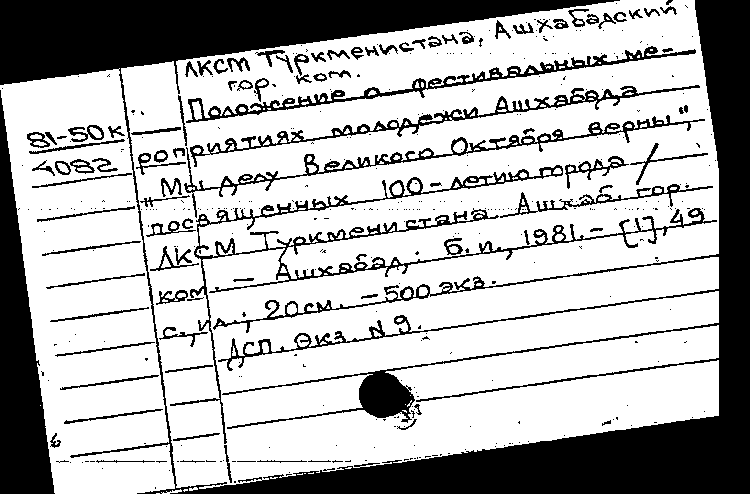 ЛКСМ Туркменистана, Ашхабадский
гор. ком.
Положение о фестивальных ме-
81-50к
роприятиях молодежи Ашхабада
4082
"Мы делу Великого Октября верны",
посвященных 100-летию города /
ЛКСМ Туркменистана. Ашхаб. гор.
ком. — Ашхабад,: б. и., 1981. - [1], 49
с., ил.; 20 см. - 500 экз.
ДСП. Экз. N 9.